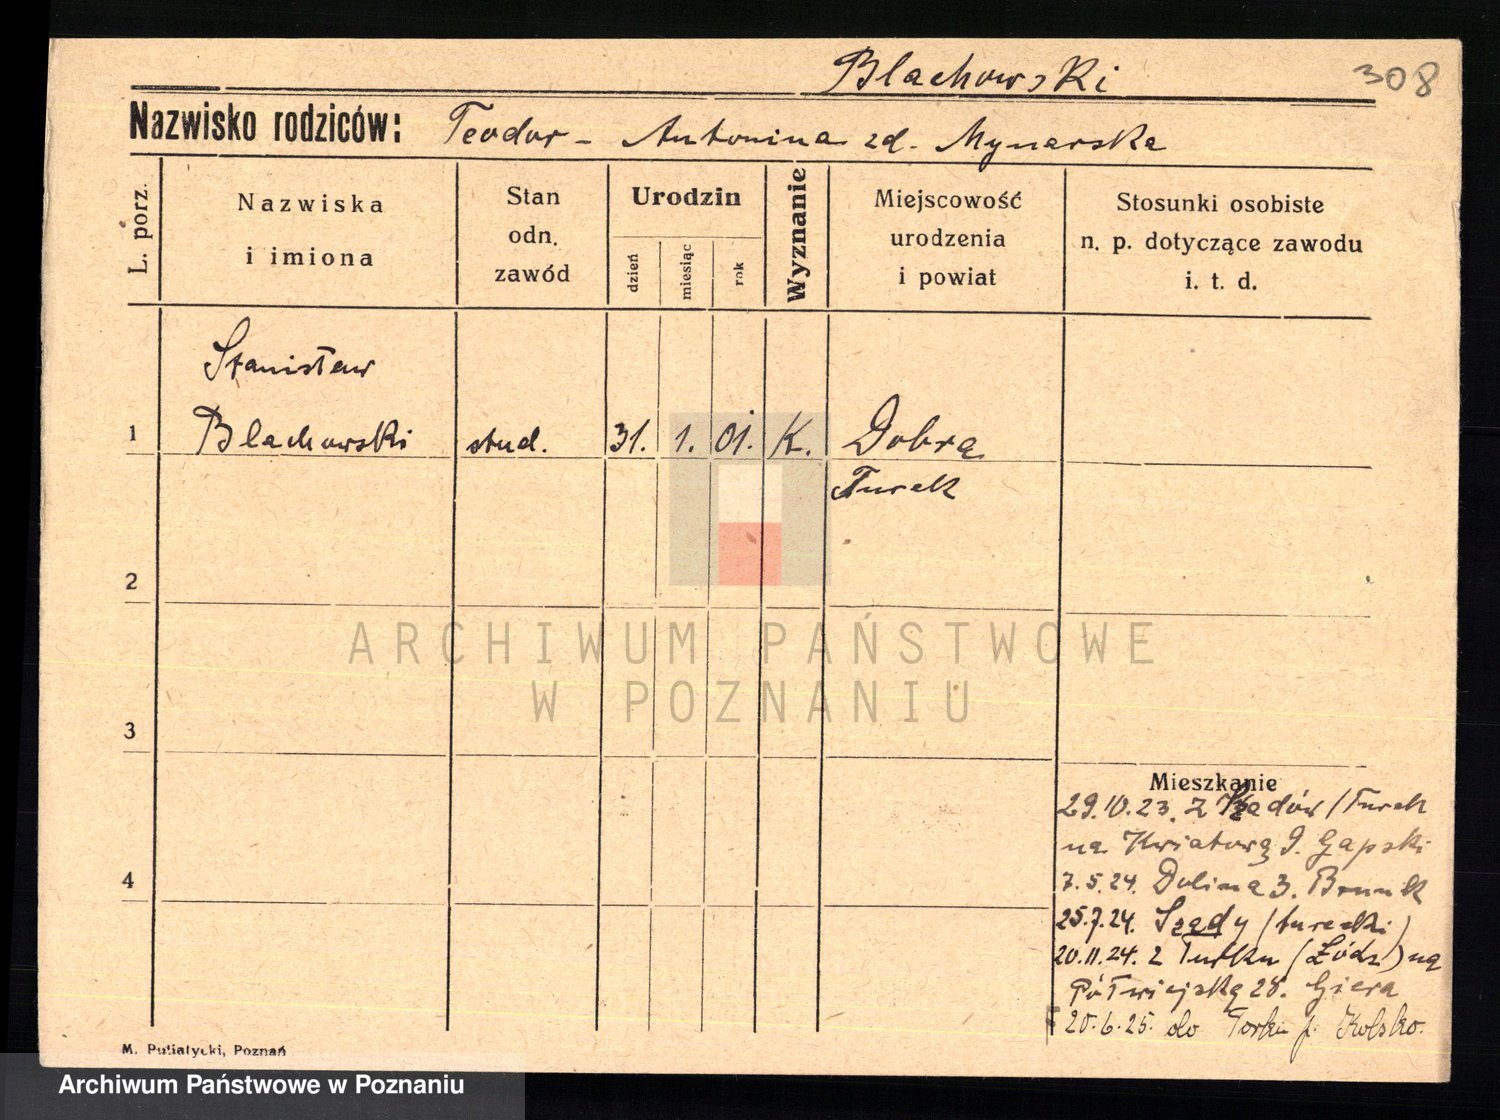 Blachowski 308
Nazwisko rodziców: Teodor - Antonina zd. Mynarska
L. porz.
Nazwiska
i imiona
Stan
odn.
zawód
Urodzin
dzień
miesiąc
rok
Wyznanie
Miejscowość
urodzenia
i powiat
Stosunki osobiste
n. p. dotyczące zawodu
i. t. d.
Stanisław
1 Blachowski stud. 31. 1. 01. K. Dobra
Turek
2
ARCHIWUM PAŃSTWOWE
W POZNANIU
3
Mieszkanie
29.10.23. z /Turek
na Kwiatową 9. Gapski
4
7.5.24. Dolina 3. Brunik
25.7.24. Szady (turecki)
20.11.24. z Turku (Łódz) na
Półwiejską 28. Giera
20.6.25. do p. Kolsko.
M. Putiatycki, Poznań
Archiwum Państwowe w Poznaniu